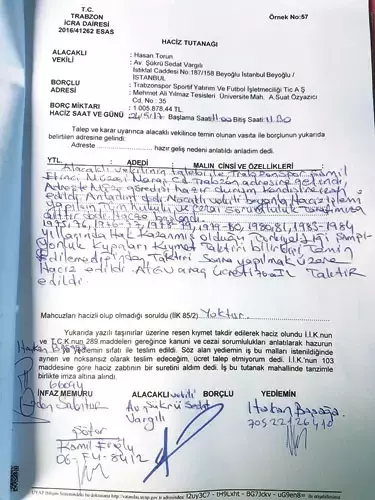 T.C.
TRABZON
İCRA DAİRESİ
2016/41262 ESAS
Örnek No:57
HACİZ TUTANAĞI
ALACAKLI : Hasan Torun
VEKİLİ : Av. Şükrü Sedat Vargılı
İstiklal Caddesi No:187/158 Beyoğlu İstanbul Beyoğlu /
İSTANBUL
BORÇLU : Trabzonspor Sportif Yatırım Ve Futbol İşletmeciliği Tic A Ş
ADRESİ : Mehmet Ali Yılmaz Tesisleri Üniversite Mah. A.Suat Özyazıcı
Cd, No : 35
BORÇ MİKTARI : 1 005 878,44 TL
HACİZ SAAT VE GÜNÜ : Başlama Saati:11:00 Bitiş Saati:11:30
Talep ve karar uyarınca alacaklı vekilince temin olunan vasıta ile borçlunun yukarıda
belirtilen adresine gelindi:
Adreste hazır geliş nedeni anlatıldı anladım dedi.
YTL. ADEDİ MALIN CİNSİ VE ÖZELLİKLERİ :
Alacaklı vekilinin talebi ile Trabzonspor Şamil
Ekinci Müzesi Maraş Cd. Trabzon adresine gelindi
Adreste Müze görevlisi hazır
edildi. Anladım dedi. Alacaklı vekili beyanla Haciz işlemi
yapılsın Hukuki ve cezai sorumluluk Tarafımıza
aittir dedi. Haciz
1975-76, 1976-77, 1978-79, 1979-80, 1980/81, 1983-1984
yıllarında Hak Kazanmış olduğu Türkiye Ligi Şampi-
yonluk Kupaları Kıymet Taktiri bilirkişi Temin
Edilemediğinden Taktiri Sonra yapılmak üzere
Haciz edildi. araç ücreti 70 TL Taktir
edildi.
Mahcuzları hacizli olup olmadığı soruldu (İİK 85/2) Yoktur.
Yukarıda yazılı taşınırlar üzerine resen kıymet takdir edilerek haciz olundu İ.İ.K.nun
ve T.C.K.nun 289.maddeleri gereğince kanuni ve cezai sorumlulukları anlatılarak hazurun
ye yediemin sıfatı ile teslim edildi. Söz alan yediemin iş bu malları istenildiğinde
aynen ve noksansız olarak teslim edeceğim, ücret talep etmiyorum dedi. İ.İ.K.nun 103
maddesine göre haciz zabtının bir suretini aldım dedi. İş bu tutanak mahallinde tanzimle
birlikte imza altına alındı.
İNFAZ MEMURU ALACAKLI vekili BORÇLU YEDİEMİN
Av. Şükrü Sedat
Vargılı
Şoför
Kamil